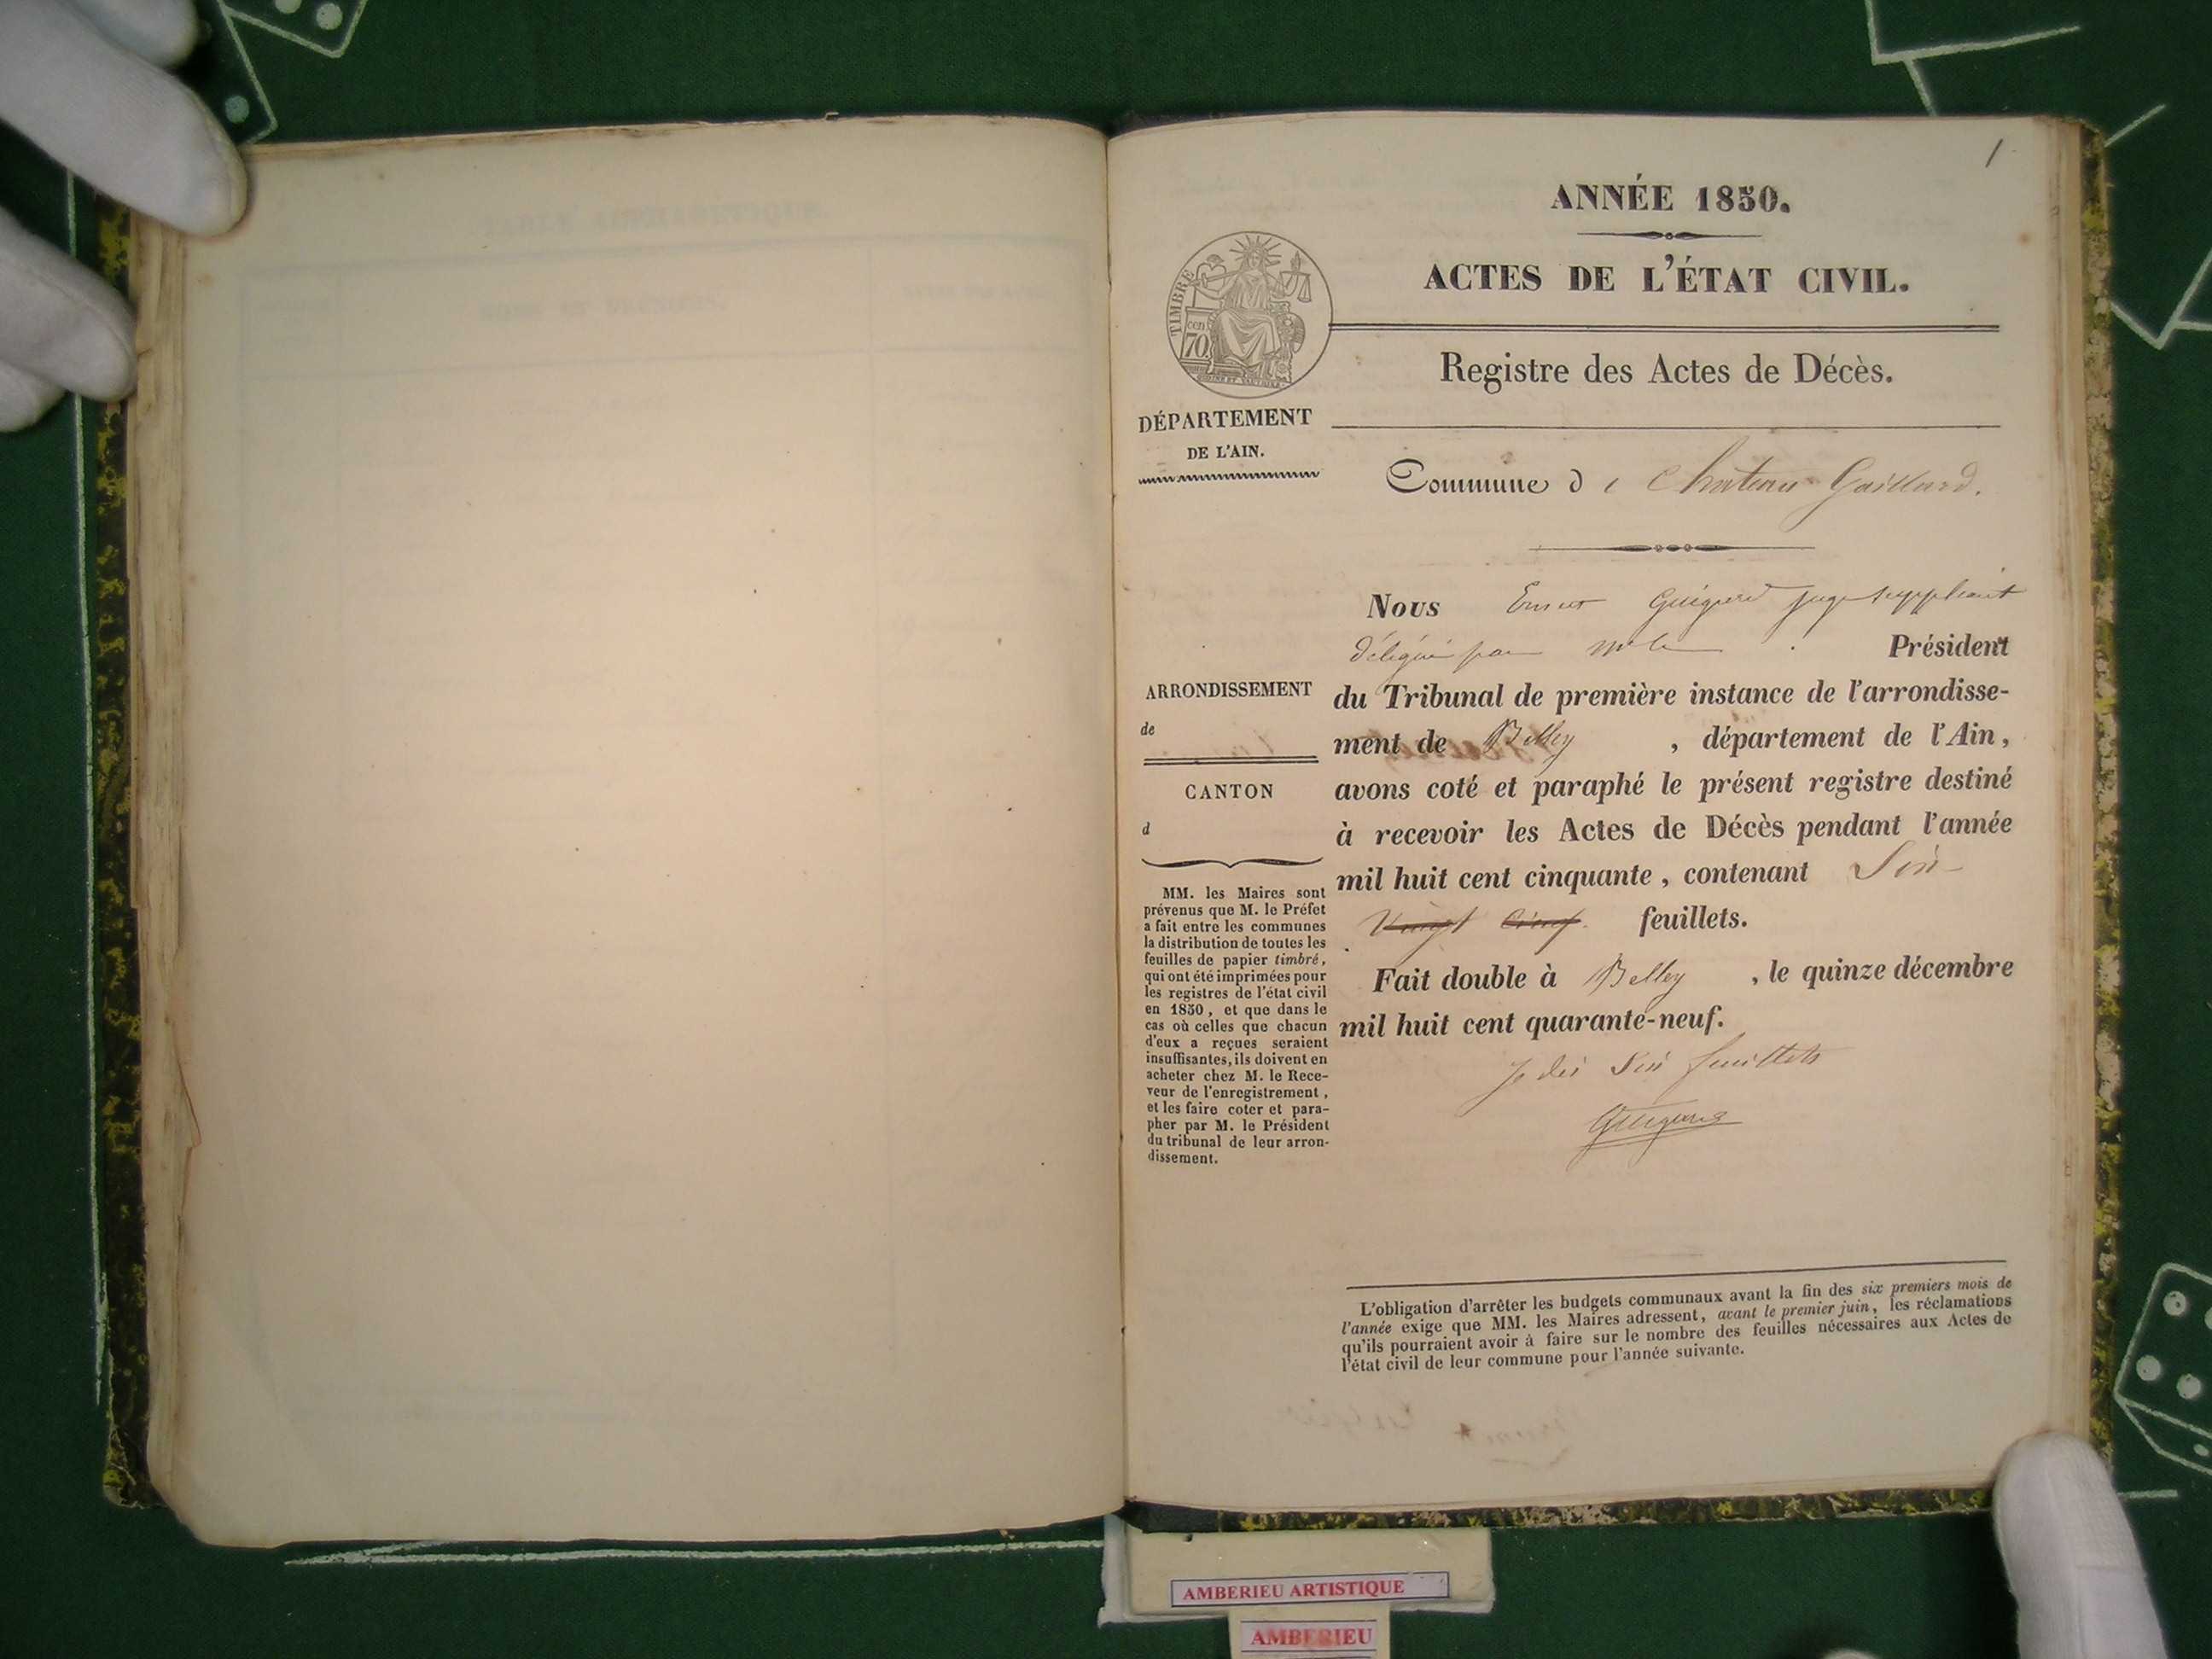 1
ANNÉE 1850.
ACTES DE L'ÉTAT CIVIL.
TIMBRE
cen
70.
Registre des Actes de Décès.
DÉPARTEMENT
DE L'AIN.
Commune de Chateau-Gaillard.
Nous Guigard juge suppléant
délégué par mr le Président
du Tribunal de première instance de l'arrondisse-
ment de Belley, département de l'Ain,
avons coté et paraphé le présent registre destiné
à recevoir les Actes de Décès pendant l'année
mil huit cent cinquante, contenant Six
Vingt Cinq feuillets.
Fait double à Belley, le quinze décembre
mil huit cent quarante-neuf.
Je dis Six feuillets
Guigard
ARRONDISSEMENT
de
CANTON
d
MM. les Maires sont
prévenus que M. le Préfet
a fait entre les communes
la distribution de toutes les
feuilles de papier timbré,
qui ont été imprimées pour
les registres de l'état civil
en 1850, et que dans le
cas où celles que chacun
d'eux a reçues seraient
insuffisantes, ils doivent en
acheter chez M. le Rece-
veur de l'enregistrement,
et les faire coter et para-
pher par M. le Président
du tribunal de leur arron-
dissement.
L'obligation d'arrêter les budgets communaux avant la fin des six premiers mois de
l'année exige que MM. les Maires adressent, avant le premier juin, les réclamations
qu'ils pourraient avoir à faire sur le nombre des feuilles nécessaires aux Actes de
l'état civil de leur commune pour l'année suivante.
AMBERIEU ARTISTIQUE
AMBERIEU